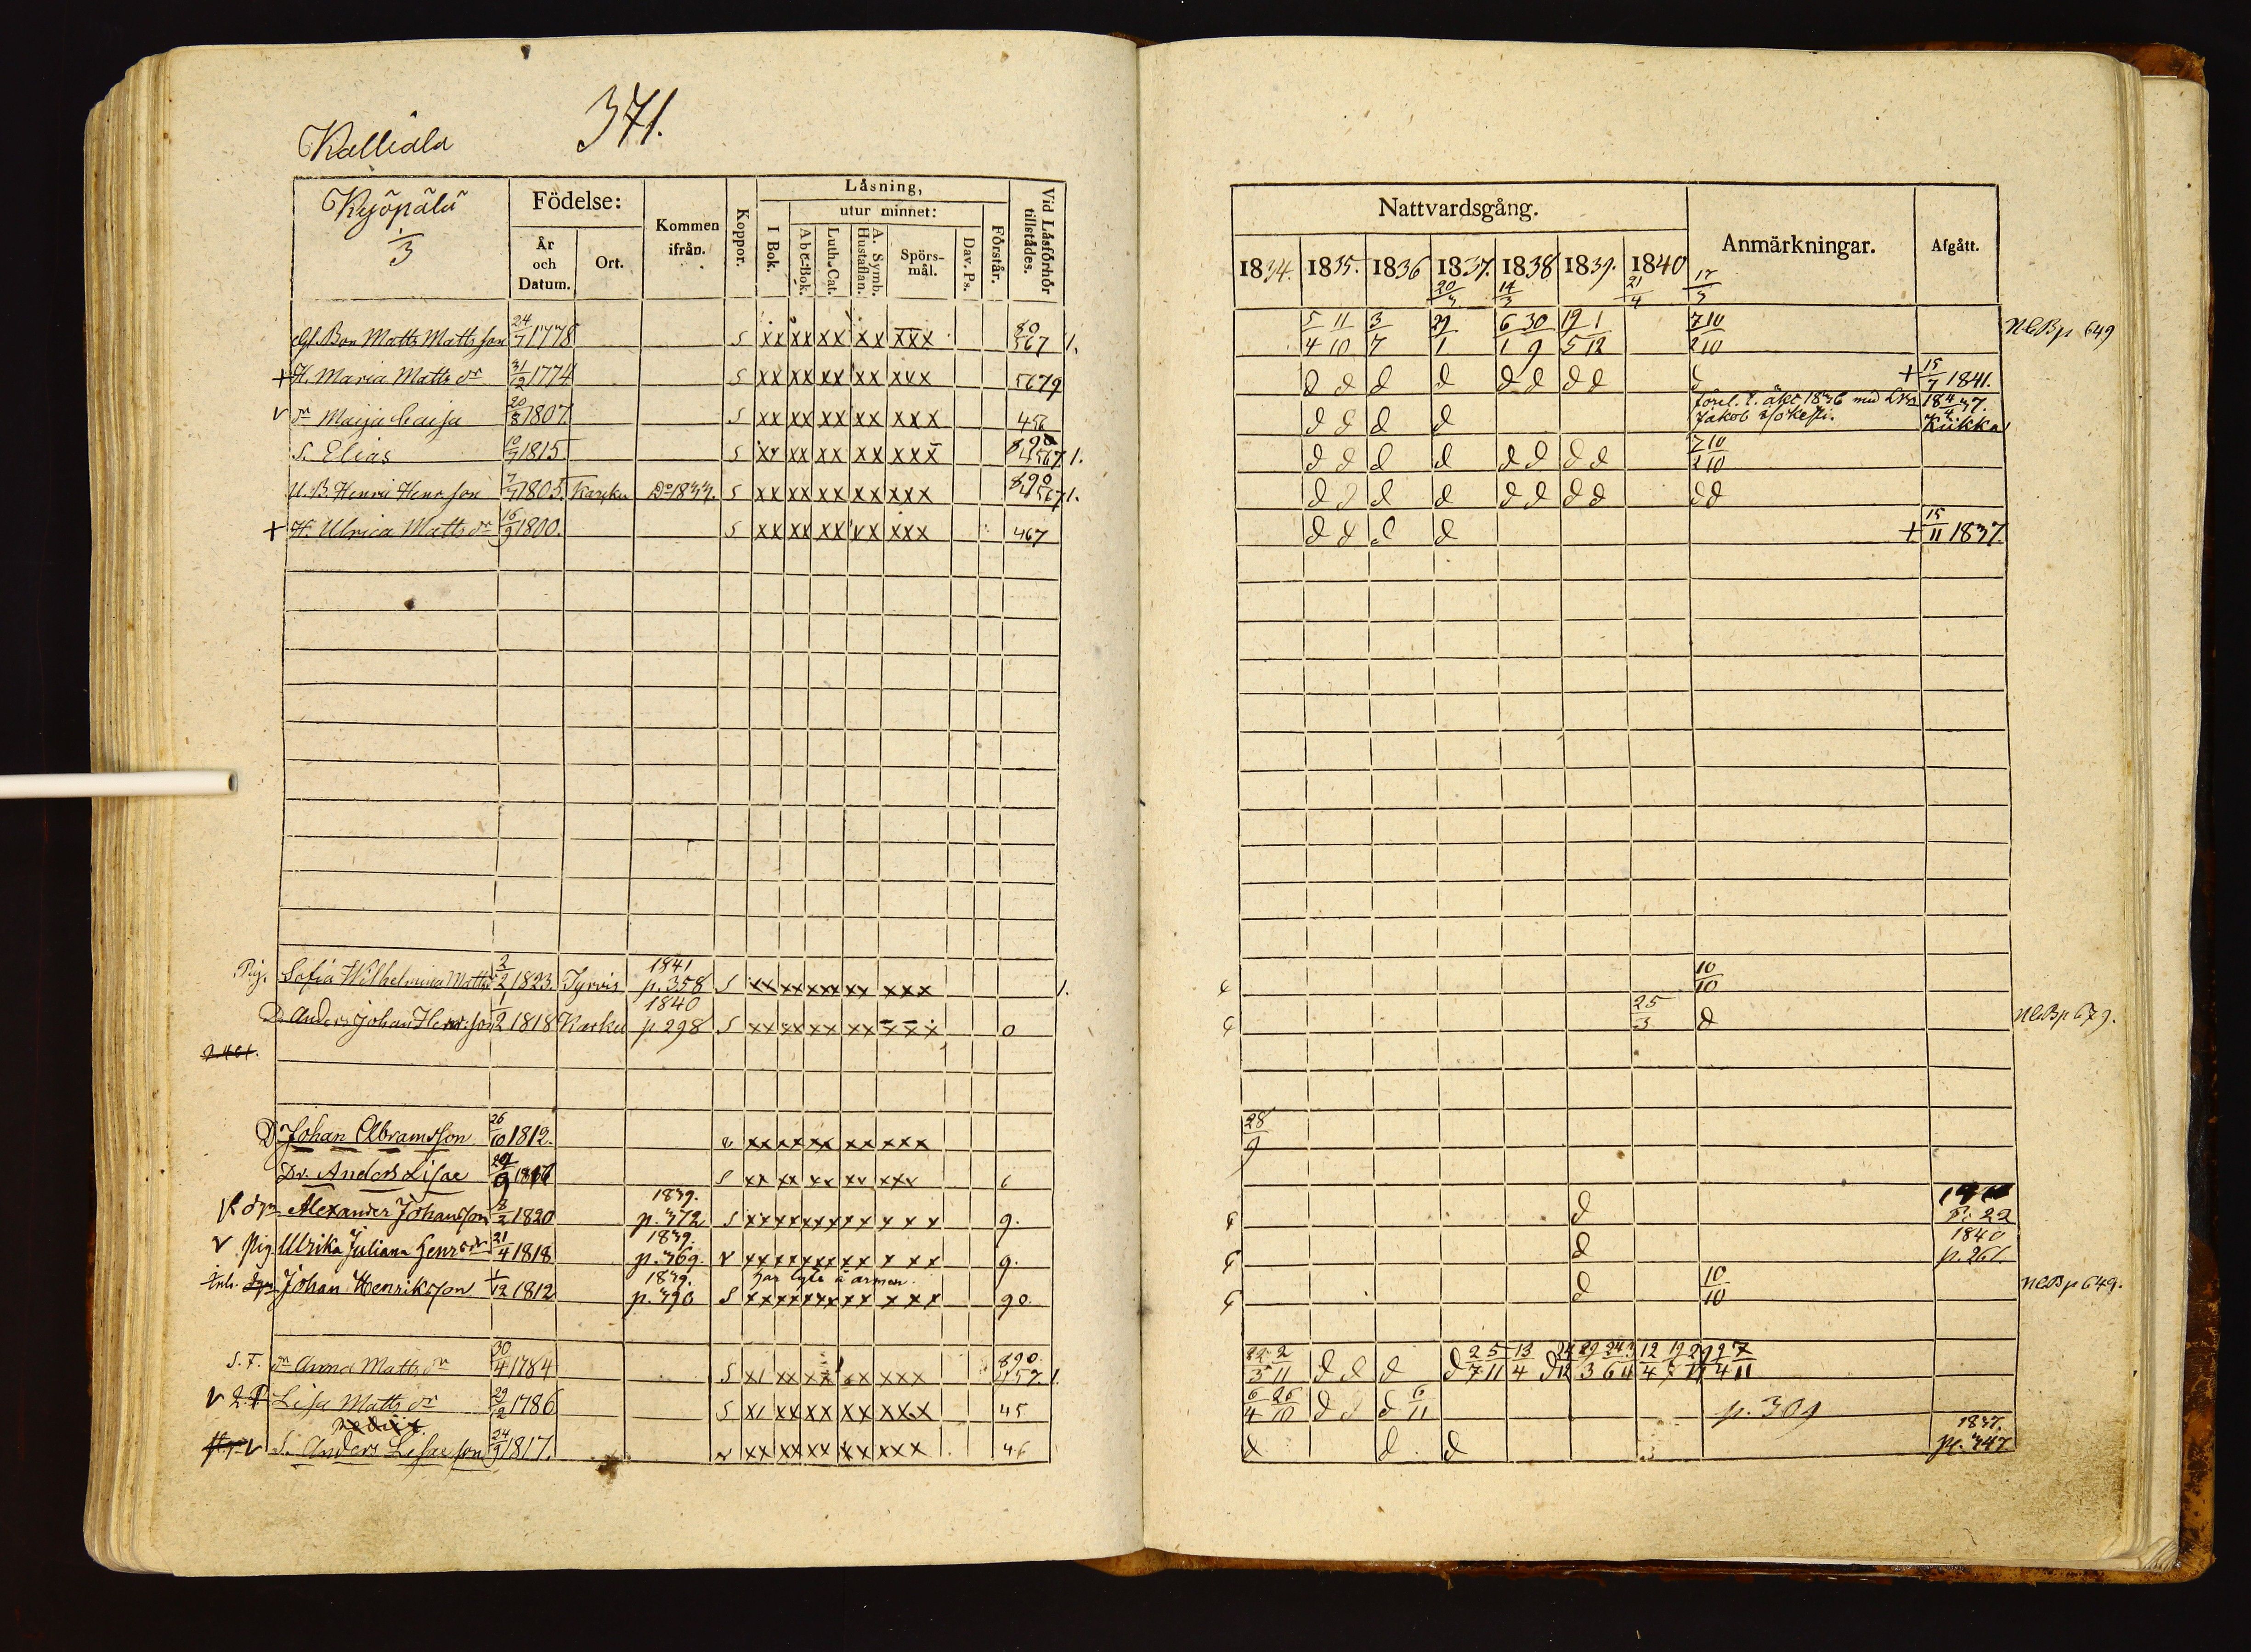 371.
Kallialä
Kyöpälä
3
Födelse:
År och Datum.
Ort.
Kommen ifrån.
Koppor.
Låsning,
I Bok.
utur minnet:
A b c-Bok.
Luth. Cat.
A. Symb. Hustaflan.
Spörs-mål.
Dav. Ps.
Förstår.
Vid Låsförhör tillstädes.
Bon Matts Matts son 24/7 1778 S xx xx xx xx xxx 80 567 1.
+ H. Maria Matts dr 31/12 1774 S xx xx xx xx xxx 5679
v dr Maija Caisa 20/8 1807. S xx xx xx xx xxx 456
S. Elias 1815 S xx xx xx xx xxx 890 4567 1.
U. B. Henric Henr. son 7/7 1805. Karku Do 1833. S xx xx xx xx xxx 890 4567 1.
+ H. Ulrica Matts dr 16/9 1800. S xx xx xx xx xxx 467
Pig. Sofia Wilhelmina Matts dr 2/2 1823. Tyrvis 1841 p. 358 S xx xx xx xx xxx 1.
D. Anders Johan Henr. son 1/2 1818 Karku 1840 p 298 S xx xx xx xx xxx 0
D Johan Abramsson 26/10 1812. v xx xx xx xx xxx
Dr. Anders Lisae 9 1816 S xx xx xx xx xxx 6
Alexander Johansson 2/2 1820 1839. p. 372 S xx xx xx xx x x x 9.
v Pig. Ulrika Juliana Henrsdr 21/4 1818 1839. p. 369. v xx xx xx xx x x x 9.
Inh. Johan Henriksson 1/12 1812 1839. p. 390 S har lyte i armen. xx xx xx xx x x x 90.
S. F. dr Anna Matts dr 30/4 1784 S xx xx xx xx xxx 890 1.
v Lisa Matts dr 29/12 1786 S xx xx xx xx xxx 45
v S. Anders Lisae son 24/9 1817. v xx xx xx xx xxx 46
Nattvardsgång.
Anmärkningar.
Afgått.
1834. 1835. 1836 1837. 1838 1839. 1840
20/3 14/3 21/4 17/3
5/4 11/10 3/7 29/1 6/1 30/9 19/5 1/12 7 10/2 10 NCBp 649
d d d d d d d d d + 15/7 1841.
d d d d förel. t. äkt. 1836 med Jakob 18 4/4 37. Kiikka
d d d d d d d d 7 10/2 10
d d d d d d d d d d
d d d d + 15/11 1837.
10/10
25/3 d NCBp 679.
28/9
d p. 22
d 1840 p. 261.
d 10/10 NCBp 649.
2/11 d d d d 25/7 11 13/4 d
6/4 26/10 d d d 6/11 p. 309
d d d 1837. p. 347